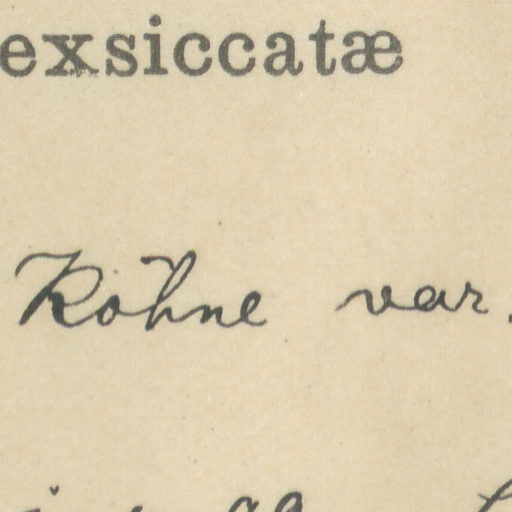 exsiccatæ
Köhne var.